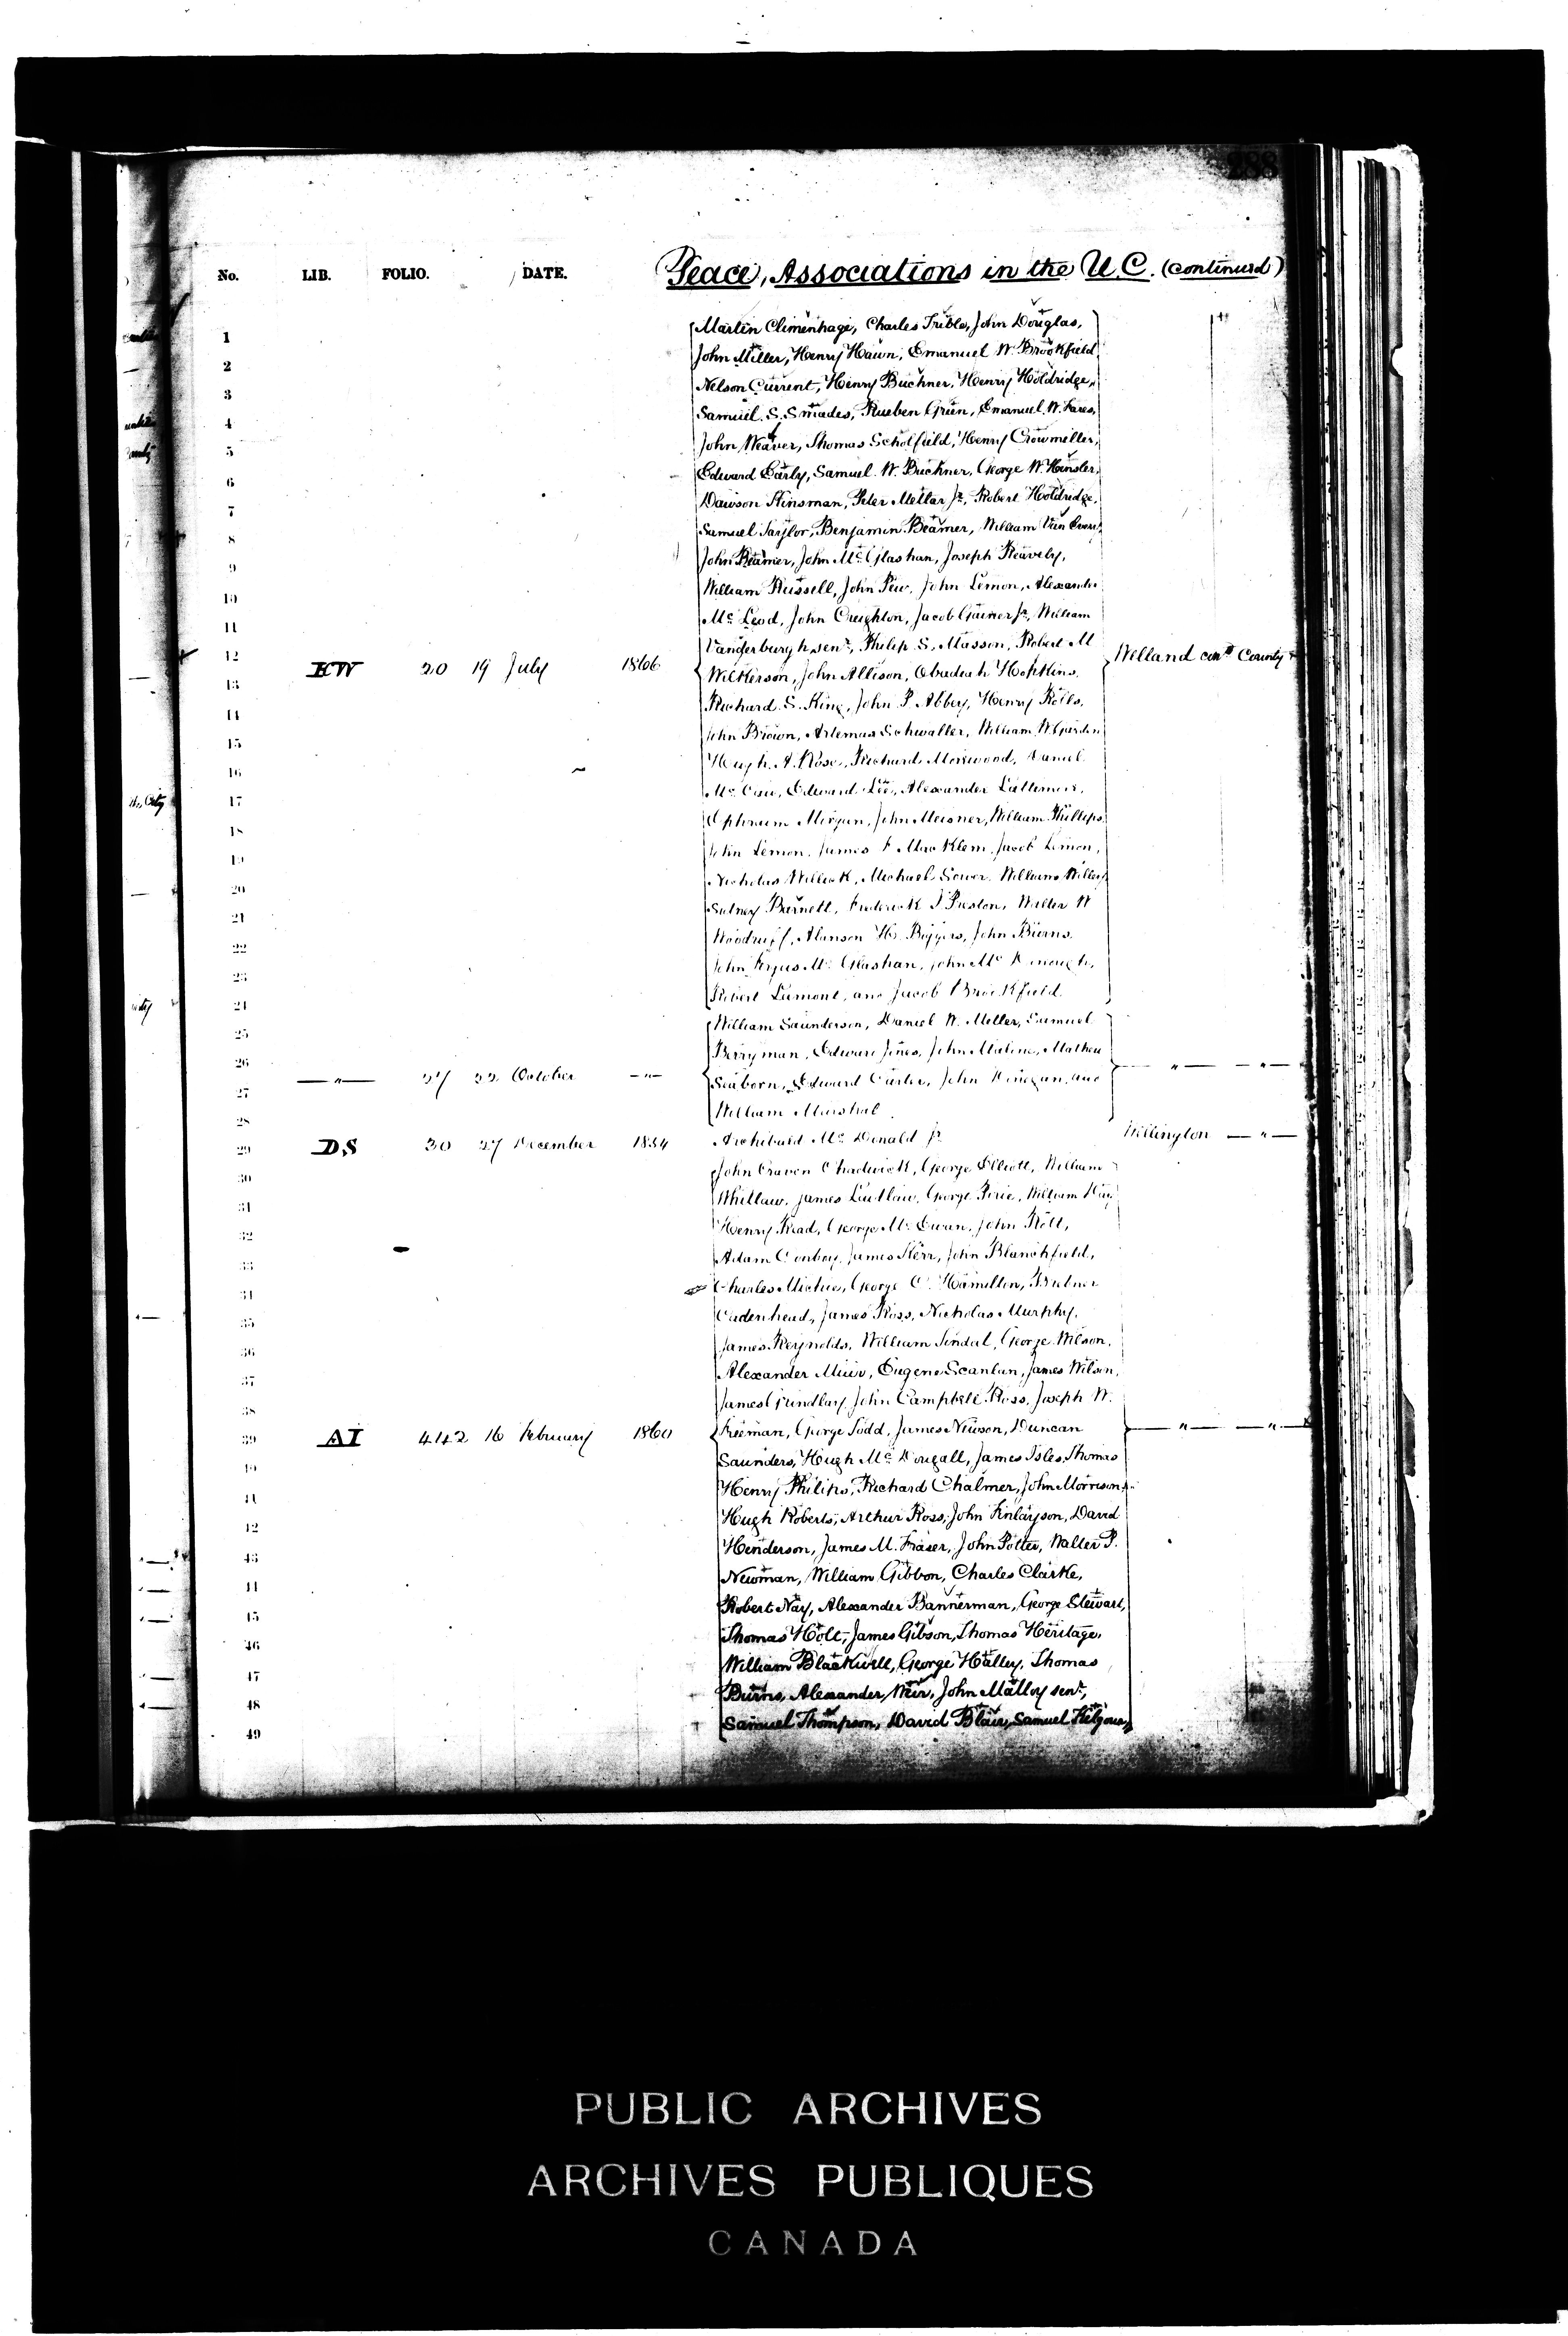 288
No. LIB. FOLIO. DATE. Peace, Associations in the U.C. (continued)
1 Martin Climenhage, Charles Trible, John Douglas,
2 John Miller, Henry Hawn, Emanuel W. Brookfield,
3 Nelson Current, Henry Buchner, Henry Holdridge,
4 Samuel S. Smades, Rueben Green, Emanuel W. Fares,
5 John Weaver, Thomas Scholfield, Henry Crowmiller,
6 Edward Early, Samuel W. Buchner, George W. Hansler,
7 Dawson Kinsman, Peter Mellar Jr, Robert Holdridge,
8 Samuel Taylor, Benjamin Beamer, William Van Every,
9 John Beamer, John McGlashan, Joseph Reavely,
10 William Russell, John Pew, John Lemon, Alexander
11 McLeod, John Creighton, Jacob Gainer Jr, William
12 Vanderburgh, senr, Philip S. Masson, Robert M
13 KW 20 19 July 1866 Wilkerson, John Allison, Obadiah Hopkins, Welland County
14 Richard S. King, John P. Abbey, Henry Rolls,
15 John Brown, Artemas Schwaller, William W.
16 Hugh A. Rose, Richard Morwood, Daniel
17 McCaw, Edward Lee, Alexander Lattimore,
18 Ephraim Morgan, John Meisner, William Phillips,
19 John Lemon, James F. Macklem, Jacob Lemon,
20 Nicholas Willick, Michael Sower, William Willey
21 Sidney Barnett, Frederick J Preston, Walter W
22 Woodruff, Alanson H. Biggers, John Burns,
23 John Fergus McGlashan, John Mc
24 Robert Lamont, and Jacob Brookfield.
25 William Saunderson, Daniel W. Miller, Samuel
26 Berryman, Edward Jones, John Malone, Mathew
27 —"— 27 22 October —"— Seaborn, Edward Carter, John Dinegan, and —"— —"—
28 William Marshal
29 DS 30 27 December 1854 Archibald McDonald Jr. Wellington —"—
30 John Craven Chadwick, George Elliott, William
31 Whitlaw, James Laidlaw, George Pirie, William Hay
32 Henry Read, George McEwan, John Holt,
33 Adam Conboy, James Kerr, John Blanchfield,
34 Charles Michie, George C. Hamilton,
35 Cadenhead, James Ross, Nicholas Murphy,
36 James Reynolds, William Tindal, George Wilson,
37 Alexander Muir, Eugene Scanlan, James Wilson,
38 James Grindlay, John Campbell Ross, Joseph W.
39 AI 442 16 February 1860 Freeman, George Todd, James Newson, Duncan —"— —"—
40 Saunders, Hugh McDougall, James Isles, Thomas
41 Henry Philips, Richard Chalmer, John Morrison,
42 Hugh Roberts, Arthur Ross, John Finlayson, David
43 Henderson, James M. Fraser, John Potter, Walter P.
44 Newman, William Gibbon, Charles Clarke,
45 Robert Nay, Alexander Bannerman, George Stewart,
46 Thomas Holt, James Gibson, Thomas Heritage,
47 William Blackwell, George Halley, Thomas
48 Burns, Alexander Weir, John Malloy senr,
49 Samuel Thompson, David Blair, Samuel Kilgour,
PUBLIC ARCHIVES
ARCHIVES PUBLIQUES
CANADA